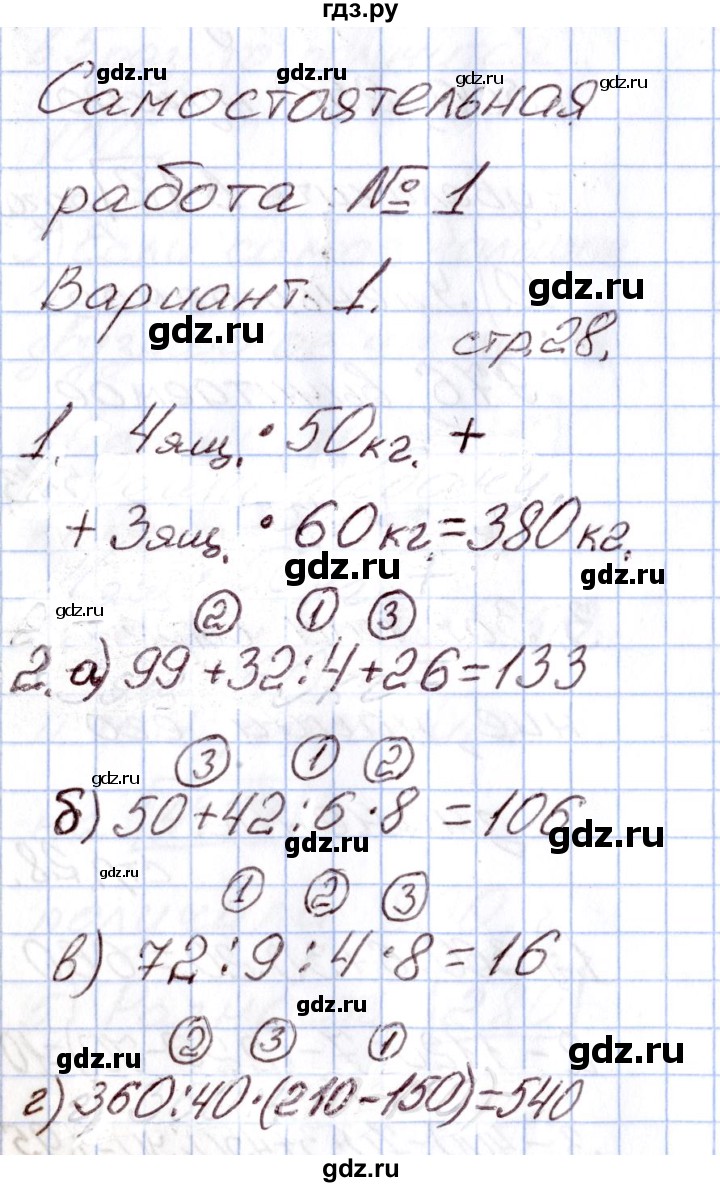 гдз.ру
gdz.ru gdz.ru gdz.ru
Самостоятельная
gdz.ru gdz.ru gdz.ru
работа № 1
Вариант 1. gdz.ru
gdz.ru стр.28.
1. 4ящ. · 50кг. +
gdz.ru gdz.ru gdz.ru
+ 3ящ. · 60кг.=380кг.
gdz.ru gdz.ru
gdz.ru ② ① ③
2. а) 99+32:4+26=133
③ ① ②
gdz.ru
б) 50+42:6·8=106
gdz.ru gdz.ru
gdz.ru ① ② ③
в) 72:9:4·8=16
gdz.ru
② ③ ①
gdz.ru gdz.ru
г) 360:40·(210-150)=540
gdz.ru